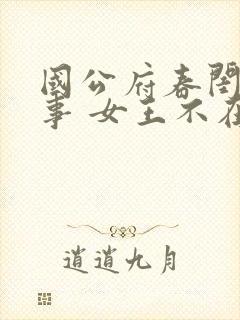 國公府春閨
事 女主不在
逍遙九月